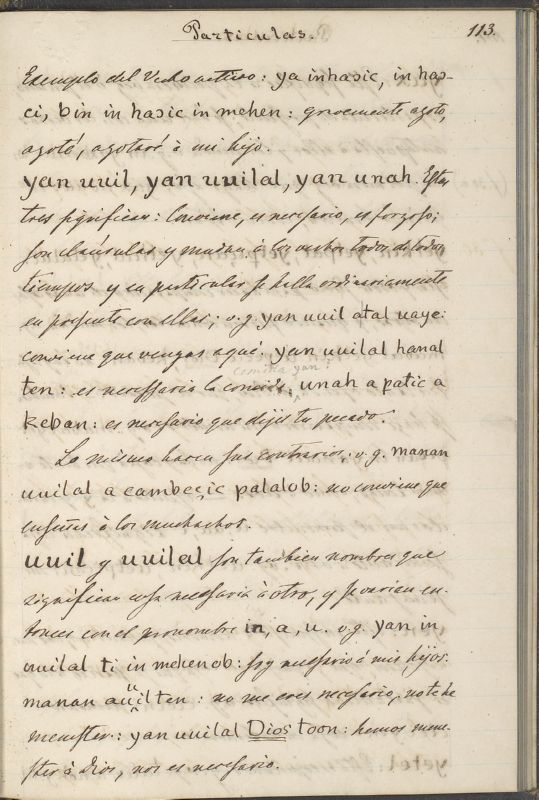 Particulas.
113.
Exemplo del Verbo activo: ya inhasic, in has-
ci, bin in hasic in mehen: gravemente azoto,
azoté, azotaré à mi hijo.
yan uuil, yan uuilal, yan unah. Estas
tres significan: Conviene, es necesario, es forzoso;
son clausulas y mudan à los verbos todos de todos
tiempos y en particular se halla ordinariamente
en presente con ellas; v.g. yan uuil atal uaye:
conviene que vengas aquí. yan uuilal hanal
comida yan?
ten: es necessaria la comida, unah a patic a
keban: es necesario que dejes tu pecado.
Lo mismo hacen sus contrarios; v.g. manan
uuilal a cambeçic palalob: no conviene que
enseñes à los muchachos.
uuil y uuilal son tambien nombres que
significan cosa necesaria à otro, y se varian en-
tonces con el pronombre in, a, u. v.g. yan in
uuilal ti in mehenob: soy necesario à mis hijos:
manan auuil ten: no me eres necesario, no te he
menester: yan uuilal Dios toon: hemos mene-
ster à Dios, nos es necesario.